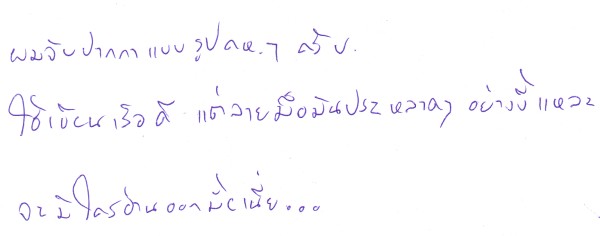 ผมจับปากกาแบบรูปคห.7 ครับ.
ใช้เขียนเร็วดี แต่ลายมือมันประหลาดๆ อย่างนี้แหละ
จะมีใครอ่านออกมั้ยเนี่ย...